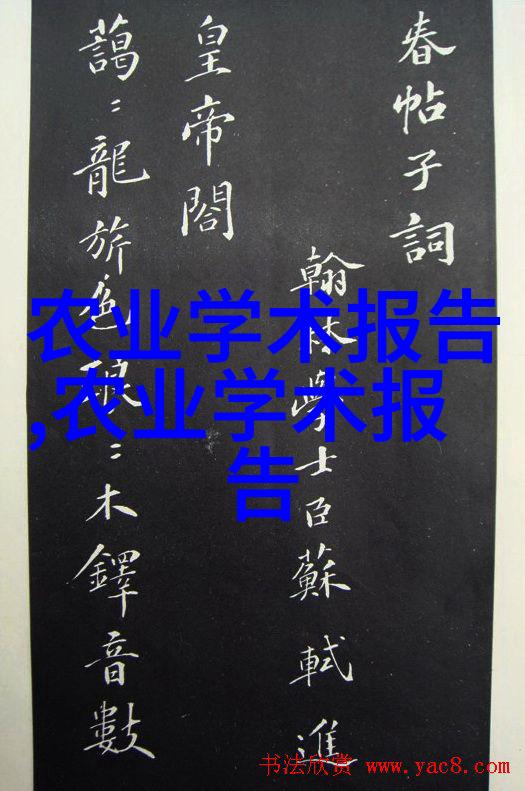 春帖子詞
翰林學士臣蘇軾進
皇帝閣
藹〻龍旂色琅〻木鐸音數
农业学术报告
,农业学术报
告
书法欣赏 www.yac8.com